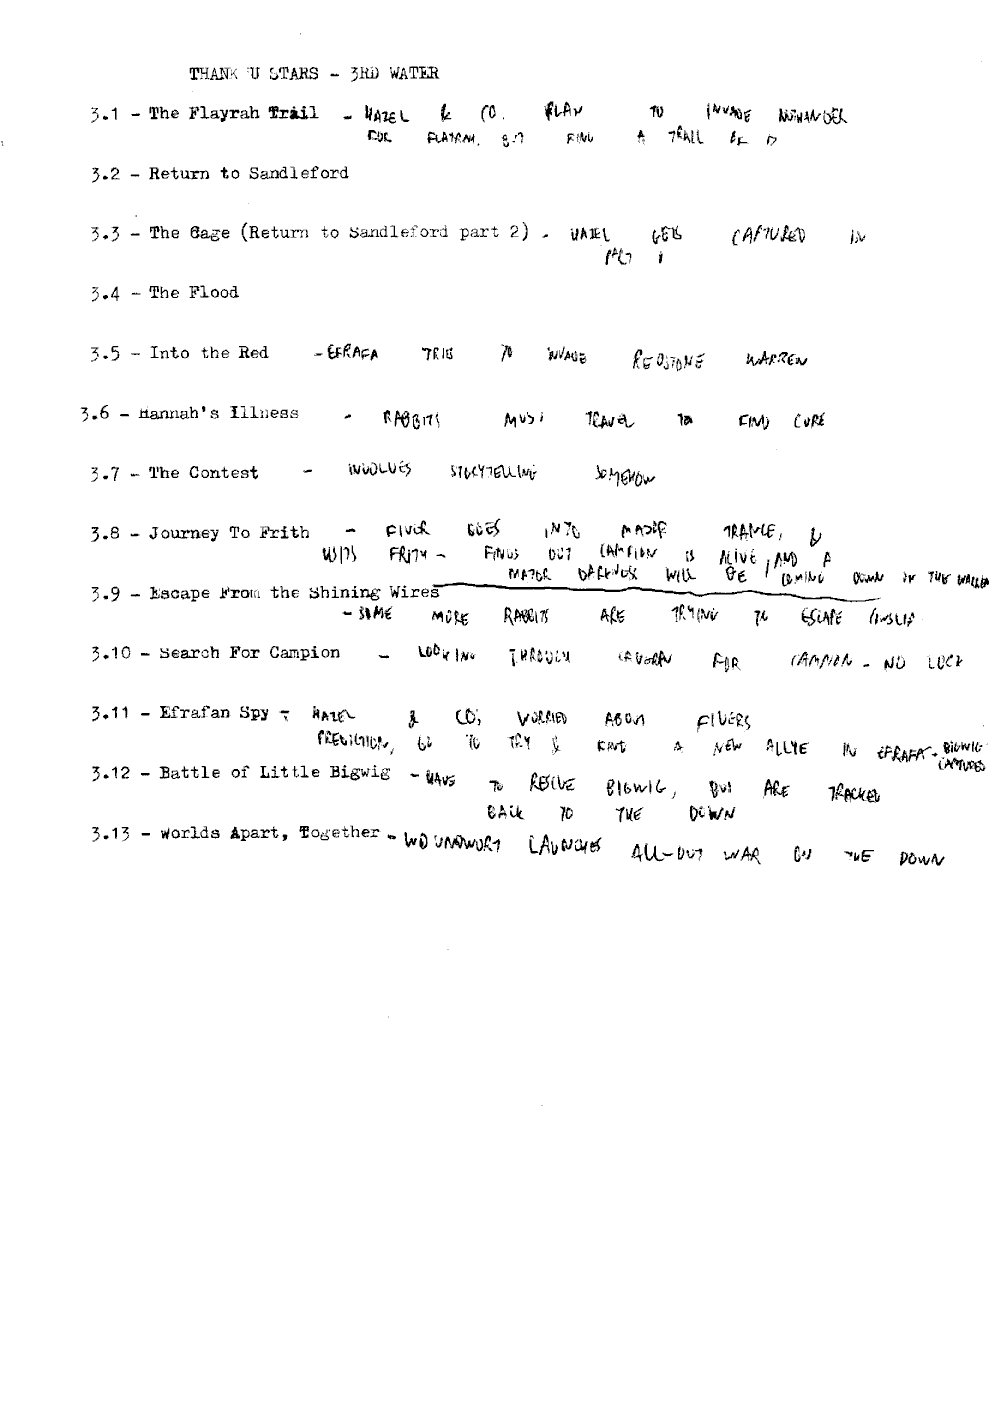 THANK U STARS - 3RD WATER
3.1 - The Flayrah Trail - HAZEL & CO. PLAN TO INVADE NUTHANGER
FOR FLAYRAH, BUT FIND A TRAIL OF IT
3.2 - Return to Sandleford
3.3 - The Cage (Return to Sandleford part 2) - HAZEL GETS CAPTURED IN
PART 1
3.4 - The Flood
3.5 - Into the Red - EFRAFA TRIES TO INVADE REDSTONE WARREN
3.6 - Hannah's Illness - RABBITS MUST TRAVEL TO FIND CURE
3.7 - The Contest - INVOLVES STORYTELLING SOMEHOW
3.8 - Journey To Frith - FIVER GOES INTO MAJOR TRANCE, &
VISITS FRITH - FINDS OUT CAMPION IS ALIVE, AND A
MAJOR DARKNESS WILL BE COMING DOWN IN THE WARREN
3.9 - Escape From the Shining Wires
- SOME MORE RABBITS ARE TRYING TO ESCAPE COWSLIP
3.10 - Search For Campion - LOOKING THROUGH CAVERN FOR CAMPION - NO LUCK
3.11 - Efrafan Spy - HAZEL & CO, WORRIED ABOUT FIVERS
PREDICTION, GO TO TRY & FIND A NEW ALLYE IN EFRAFA - BIGWIG
CAPTURED
3.12 - Battle of Little Bigwig - HAVE TO RESCUE BIGWIG, BUT ARE TRACKED
BACK TO THE DOWN
3.13 - Worlds Apart, Together - WOUNDWORT LAUNCHES ALL-OUT WAR ON THE DOWN